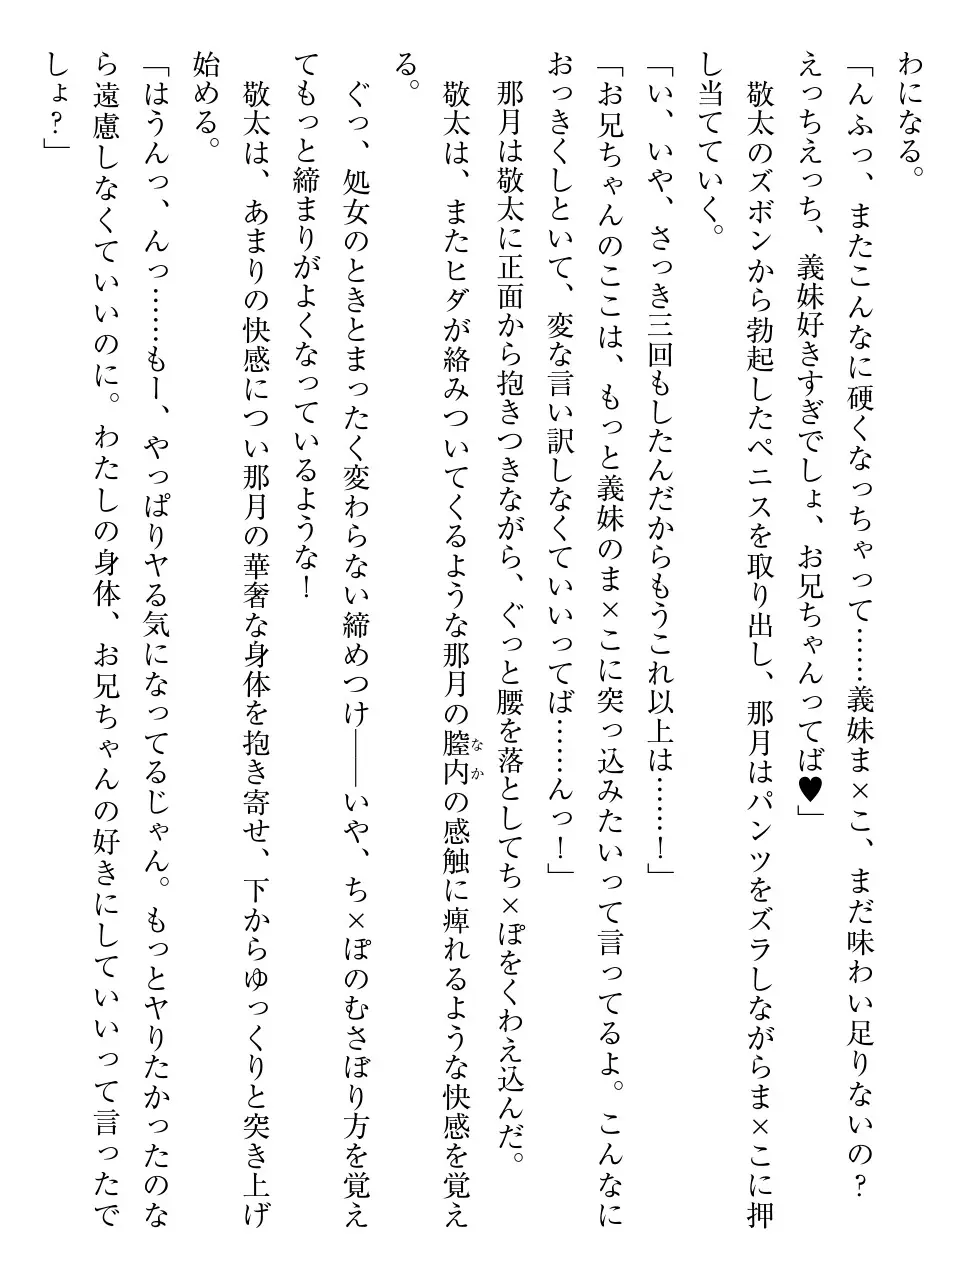 わになる。
「んふっ、またこんなに硬くなっちゃって……義妹ま×こ、まだ味わい足りないの？
えっちえっち、義妹好きすぎでしょ、お兄ちゃんってば♥」
　敬太のズボンから勃起したペニスを取り出し、那月はパンツをズラしながらま×こに押
し当てていく。
「い、いや、さっき三回もしたんだからもうこれ以上は……！」
「お兄ちゃんのここは、もっと義妹のま×こに突っ込みたいって言ってるよ。こんなに
おっきくしといて、変な言い訳しなくていいってば……んっ！」
　那月は敬太に正面から抱きつきながら、ぐっと腰を落としてち×ぽをくわえ込んだ。
　敬太は、またヒダが絡みついてくるような那月の膣内なかの感触に痺れるような快感を覚え
る。
　ぐっ、処女のときとまったく変わらない締めつけ――いや、ち×ぽのむさぼり方を覚え
てもっと締まりがよくなっているような！
　敬太は、あまりの快感につい那月の華奢な身体を抱き寄せ、下からゆっくりと突き上げ
始める。
「はうんっ、んっ……もー、やっぱりヤる気になってるじゃん。もっとヤりたかったのな
ら遠慮しなくていいのに。わたしの身体、お兄ちゃんの好きにしていいって言ったで
しょ？」